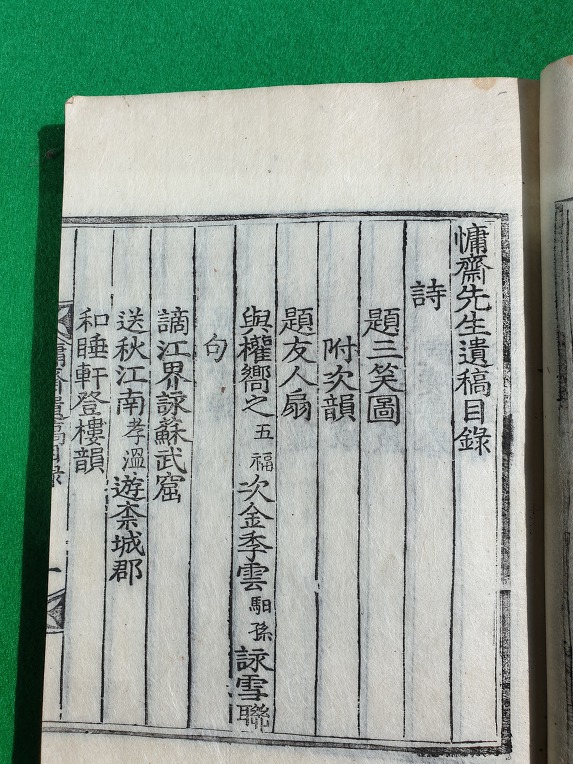 慵齋先生遺稿目錄
詩
題三笑圖
附次韻
題友人扇
與權嚮之五福次金季雲馹孫詠雪聯
句
謫江界詠蘇武窟
送秋江南孝溫遊柰城郡
和睡軒登樓韻
慵齋遺稿目錄
一